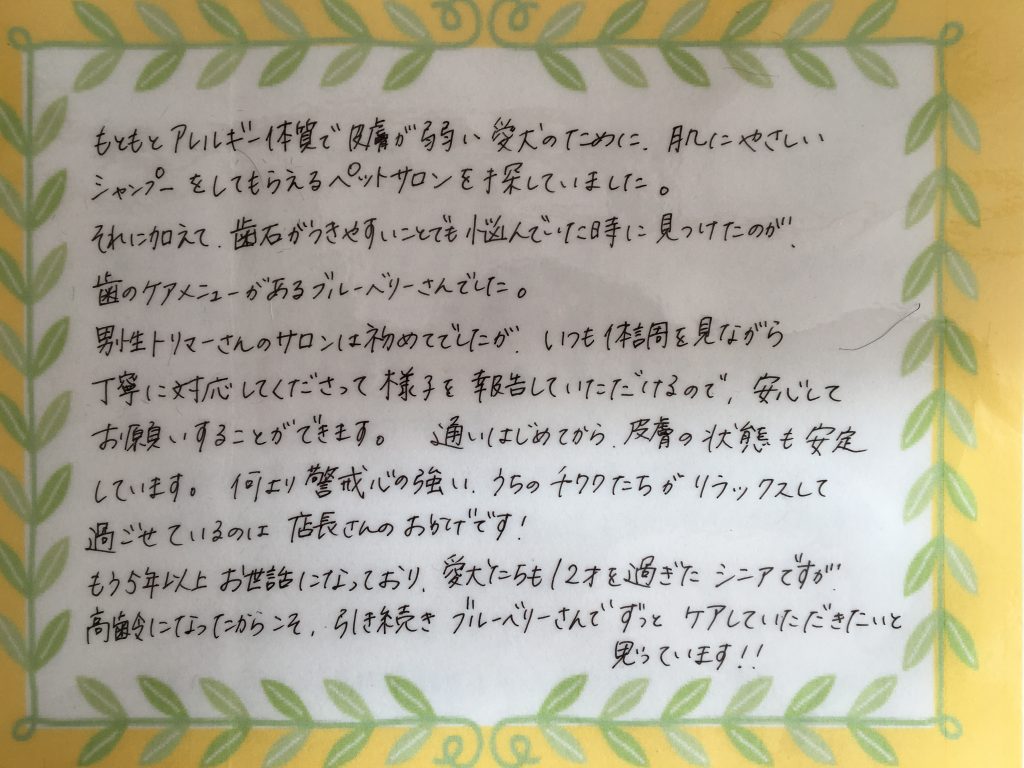 もともとアレルギー体質で皮膚が弱い愛犬のために、肌にやさしい
シャンプーをしてもらえるペットサロンを探していました。
それに加えて、歯石がつきやすいことでも悩んでいた時に見つけたのが、
歯のケアメニューがあるブルーベリーさんでした。
男性トリマーさんのサロンは初めてでしたが、いつも体調を見ながら
丁寧に対応してくださって様子を報告していただけるので、安心して
お願いすることができます。 通いはじめてから、皮膚の状態も安定
しています。 何より警戒心の強い、うちのチワワたちがリラックスして
過ごせているのは店長さんのおかげです!
もう5年以上お世話になっており、愛犬たちも12才を過ぎたシニアですが、
高齢になったからこそ、引き続きブルーベリーさんでずっとケアしていただきたいと
思っています!!